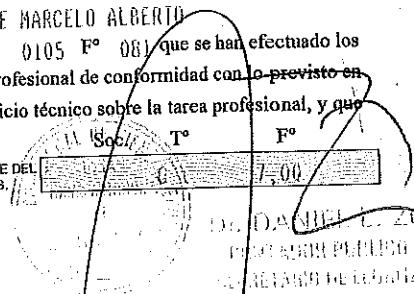 E MARCELO ALBERTO
0105 Fº 081 que se han efectuado los
rofesional de conformidad con lo previsto en
icio técnico sobre la tarea profesional, y que
Soc. Tº Fº
E DEL
7,00
DANIEL